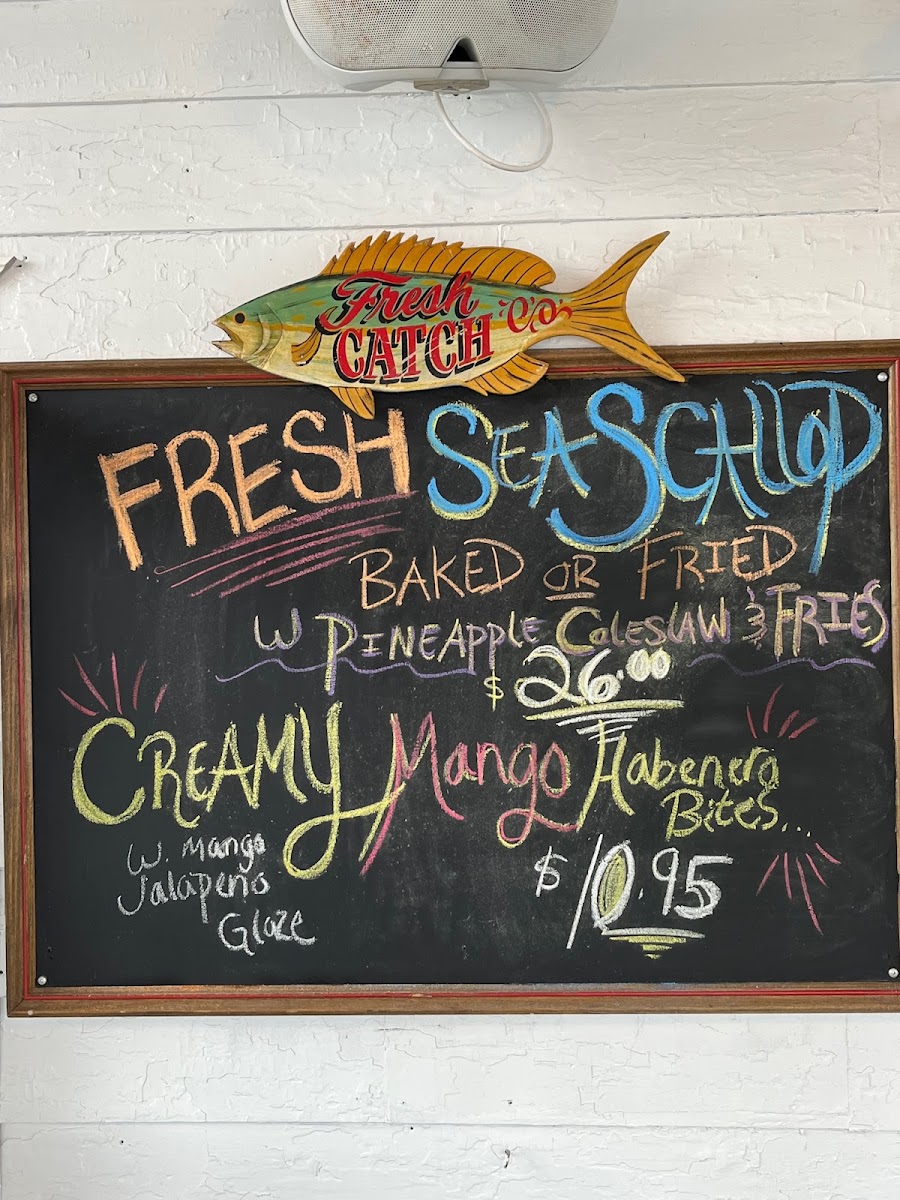 Fresh
CATCH
FRESH SEA SCALLOP
BAKED OR FRIED
W PINEAPPLE COLESLAW & FRIES
$26.00
CREAMY Mango Habenero
Bites...
W. Mango
Jalapeño
Glaze
$10.95